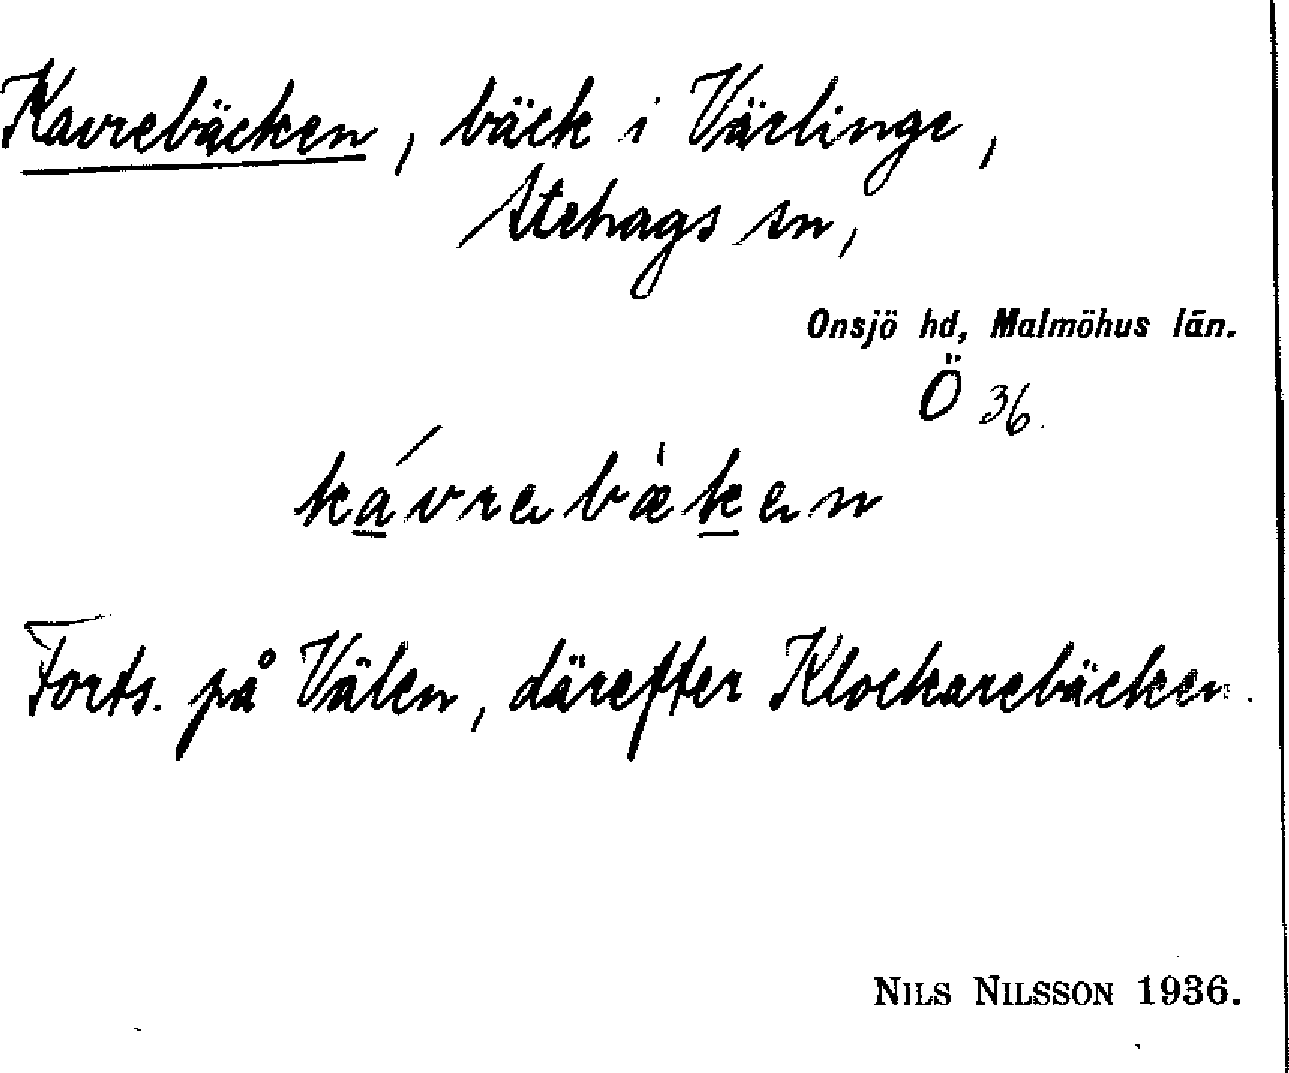 Kavrebäcken, bäck i Värlinge,
Stehags sn,
Onsjö hd, Malmöhus län.
Ö 36.
kávrebäken
Forts. på Välen, därefter Klockarebäcken.
NILS NILSSON 1936.